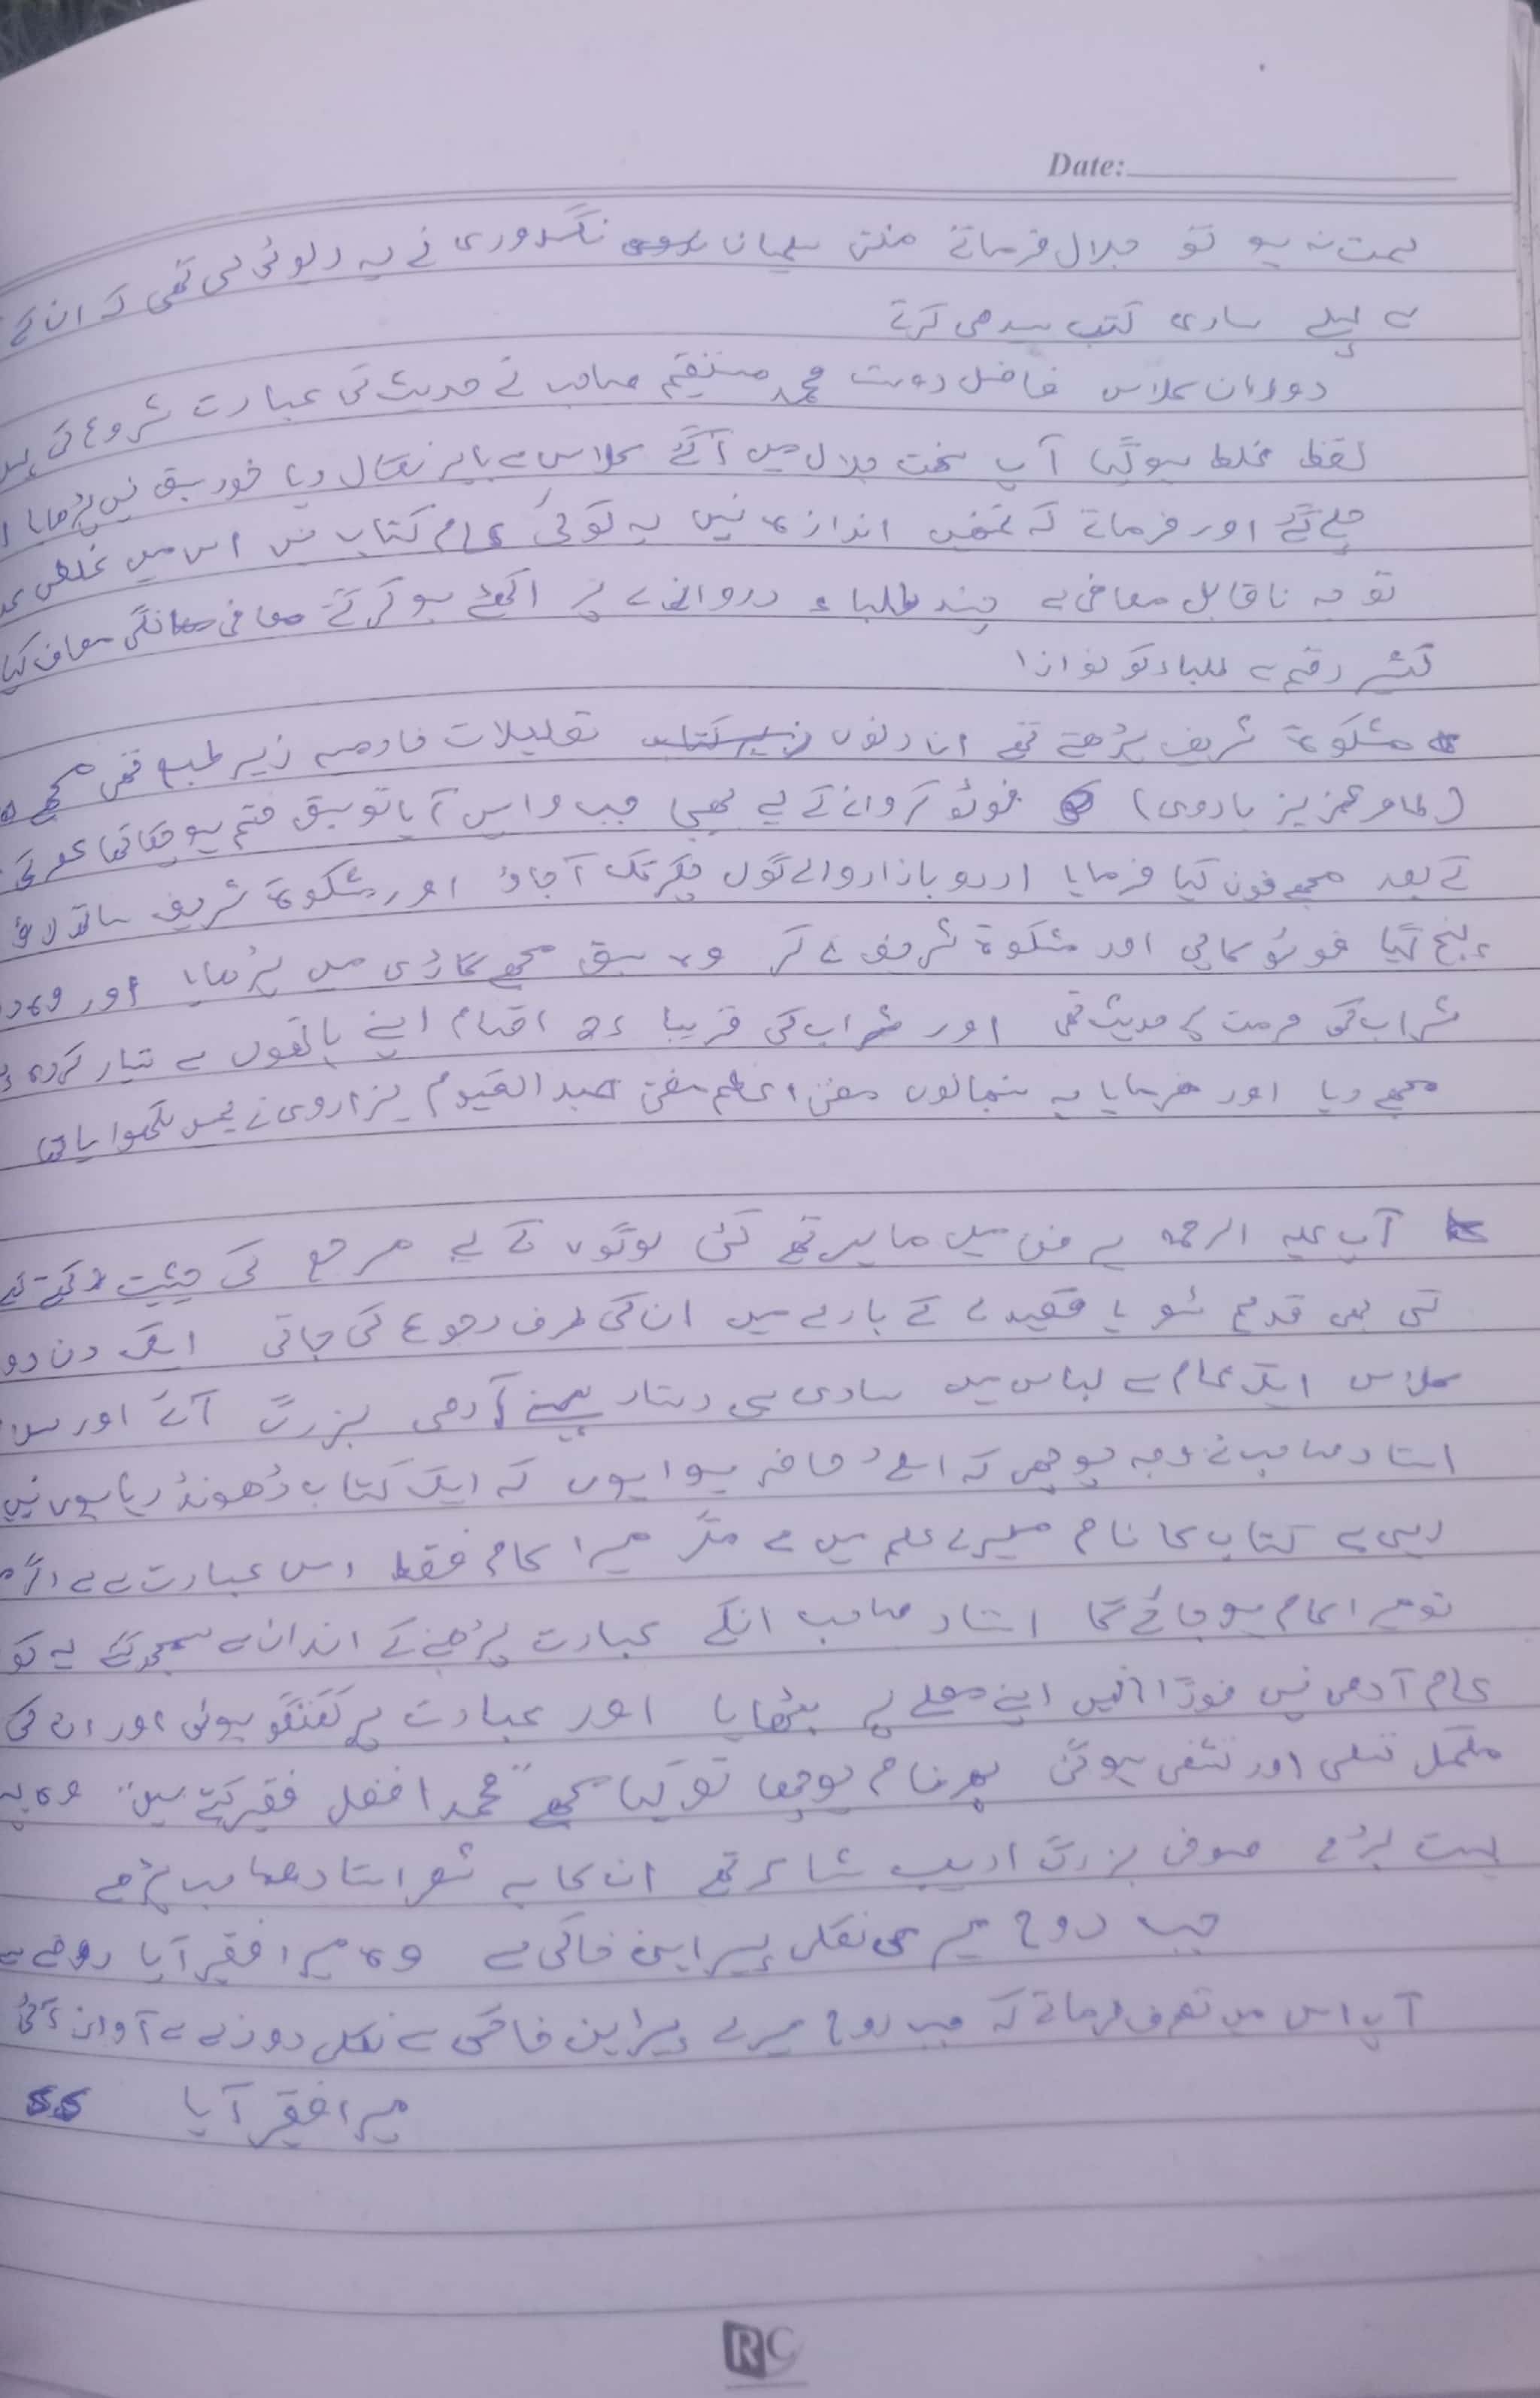 Date:
سمت نہ ہو تو جلال فرماتے مفتی سلیمان نگسدوری نے یہ ڈیوٹی لی تھی کہ ان کے
سے پہلے ساری کتب سیدھی کرتے
دوران کلاس فاضل دوست محمد مستقیم صاحب نے حدیث کی عبارت شروع کی
لفظ غلط ہو گیا آپ سخت جلال میں آگئے کلاس سے باہر نکال دیا خود سبق نہیں پڑھایا
چلے گئے اور فرماتے کہ تمھیں اندازہ نہیں یہ کوئی عام کتاب نہیں اس میں غلطی
تو یہ ناقابل معافی ہے چند طلباء دروازے پر اکھٹے ہو کر گئے معافی مانگی معاف کیا
کثیر رقم سے طلباء کو نوازا
مشکوۃ شریف پڑھتے تھے ان دنوں تعلیلات خادمیہ زیر طبع تھی مجھے
(طاہر عزیز باروی) فوٹو کروانے کے لیے بھیجا جب واپس آیا تو سبق ختم ہو چکا تھا عصر کی
کے بعد مجھے فون کیا فرمایا اردو بازار والے گول چکر تک آجاؤ اور مشکوۃ شریف ساتھ لاؤ
پہنچ گیا فوٹو کاپی اور مشکوۃ شریف لے کر وہ سبق مجھے گاڑی میں پڑھایا اور وہ
شراب کی حرمت کی حدیث تھی اور شراب کی قریبا اقسام اپنے ہاتھوں سے تیار کردہ
مجھے دیا اور فرمایا یہ سنبھالوں مفتی اعظم مفتی عبد القیوم ہزاروی نے ہمیں لکھوایا تھا
آپ علیہ الرحمہ ہر فن میں ماہر تھے کئی لوگوں کے لیے مرجع کی حیثیت رکھتے تھے
کسی بھی قدیم شعر یا قصیدے کے بارے میں ان کی طرف رجوع کی جاتی ایک دن دو
کلاس ایک عام سے لباس میں سادی سی دستار پہنے آدمی بزرگ آئے اور
استاد صاحب نے وجہ پوچھی کہ اسلئے حاضر ہوا ہوں کہ ایک کتاب ڈھونڈ رہا ہوں نہیں
رہی ہے کتاب کا نام میرے علم میں ہے مگر میرا کام فقط اس عبارت سے ہے اگر
تو میرا کام ہو جائے گا استاد صاحب انکے عبارت پڑھنے کے انداز سے سمجھ گئے یہ کو
عام آدمی نہیں فوراً انہیں اپنے مصلے پر بٹھایا اور عبارت پر گفتگو ہوئی اور ان کی
مکمل تسلی اور تشفی ہو گئی پھر نام پوچھا تو کہا مجھے "محمد افضل فقیر کہتے ہیں" وہ یہ
بہت بڑے صوفی بزرگ ادیب شاعر تھے ان کا یہ شعر استاد صاحب پڑھتے
جب روح میری نکلی پیراہن خاکی سے وہ میرا فقیر آیا روضے سے
آپ اس میں تصرف فرماتے کہ جب روح میرے پیراہن خاکی سے نکلی روضے سے آواز آئی
میرا فقیر آیا
RC